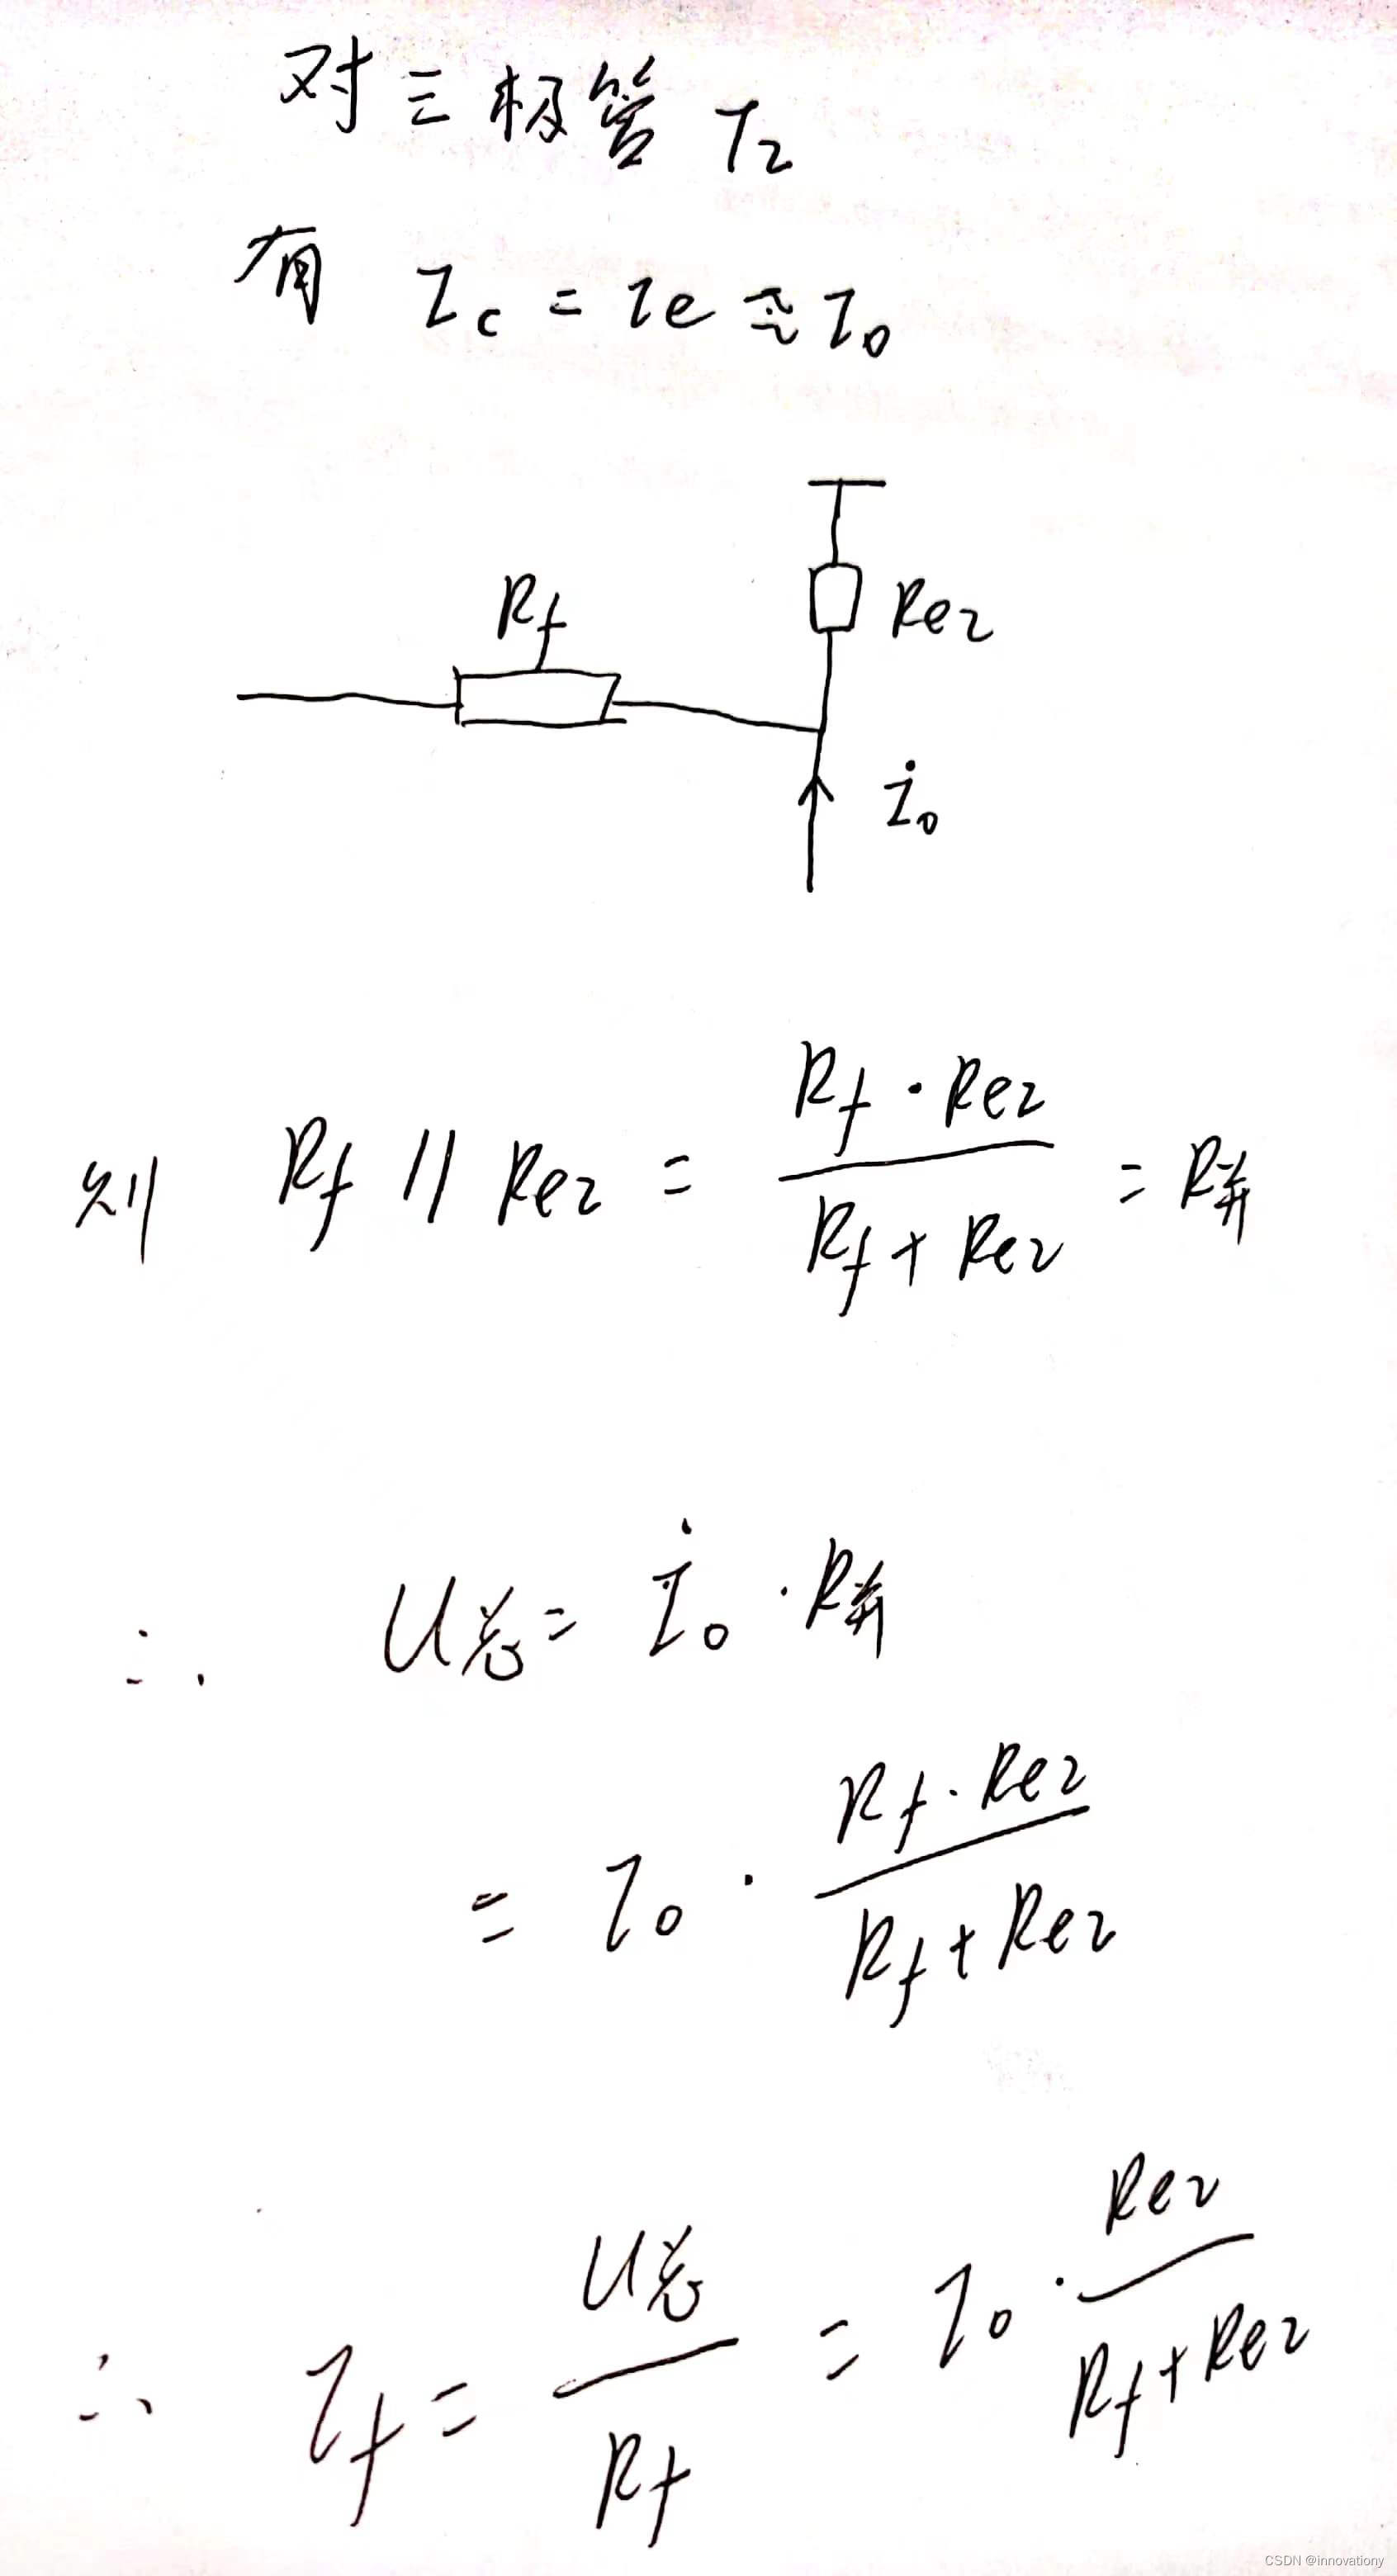 对三极管 T2
有 Ic = Ie ≈ Io
Rf
Re2
İo
则 Rf // Re2 = Rf · Re2 / Rf + Re2 = R并
∴ U总 = İo · R并
= Io · Rf · Re2 / Rf + Re2
∴ If = U总 / Rf = Io · Re2 / Rf + Re2
CSDN @innovationy